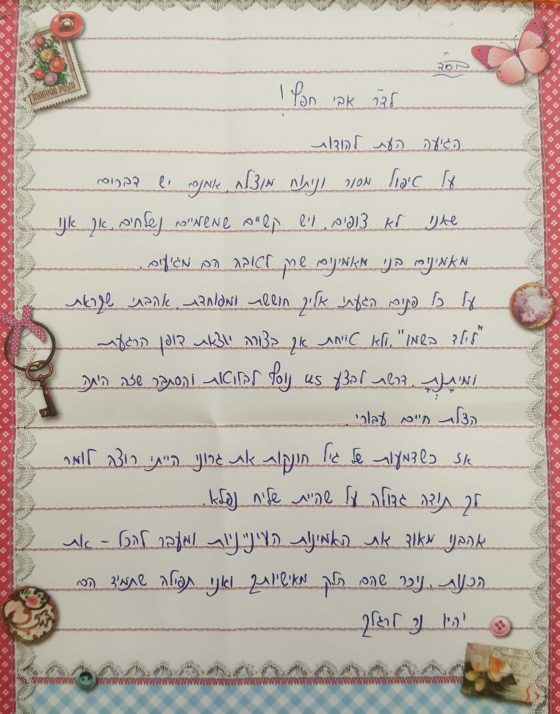 בס"ד
לד"ר אבי חפץ!
הגיעה העת להודות
על טיפול מסור וניתוח מוצלח. אמנם יש דברים
שאנו לא צופים, ויש קשיים שמשמיים נשלחים, אך אנו
מאמינים בני מאמינים שרק לטובה הם מגיעים.
על כל פנים הגעתי אליך חוששת ומפוחדת. אהבתי שקראת
"לילד בשמו", ולא טייחת אך בצורה יוצאת דופן הרגעת
ומיתנת. דרשת לבצע us נוסף לבלוטות והסתבר שזה היתה
הצלת חיים עבורי.
אז כשדמעות של גיל חונקות את גרוני הייתי רוצה לומר
לך תודה גדולה על שהיית שליח נפלא.
אהבנו מאוד את האמינות העינייניות ומעבר להכל – את
הכנות. ניכר שהם חלק מאישיותך ואני תפילה שתמיד הם
יהיו נר לרגלך
MAGYAR POSTA